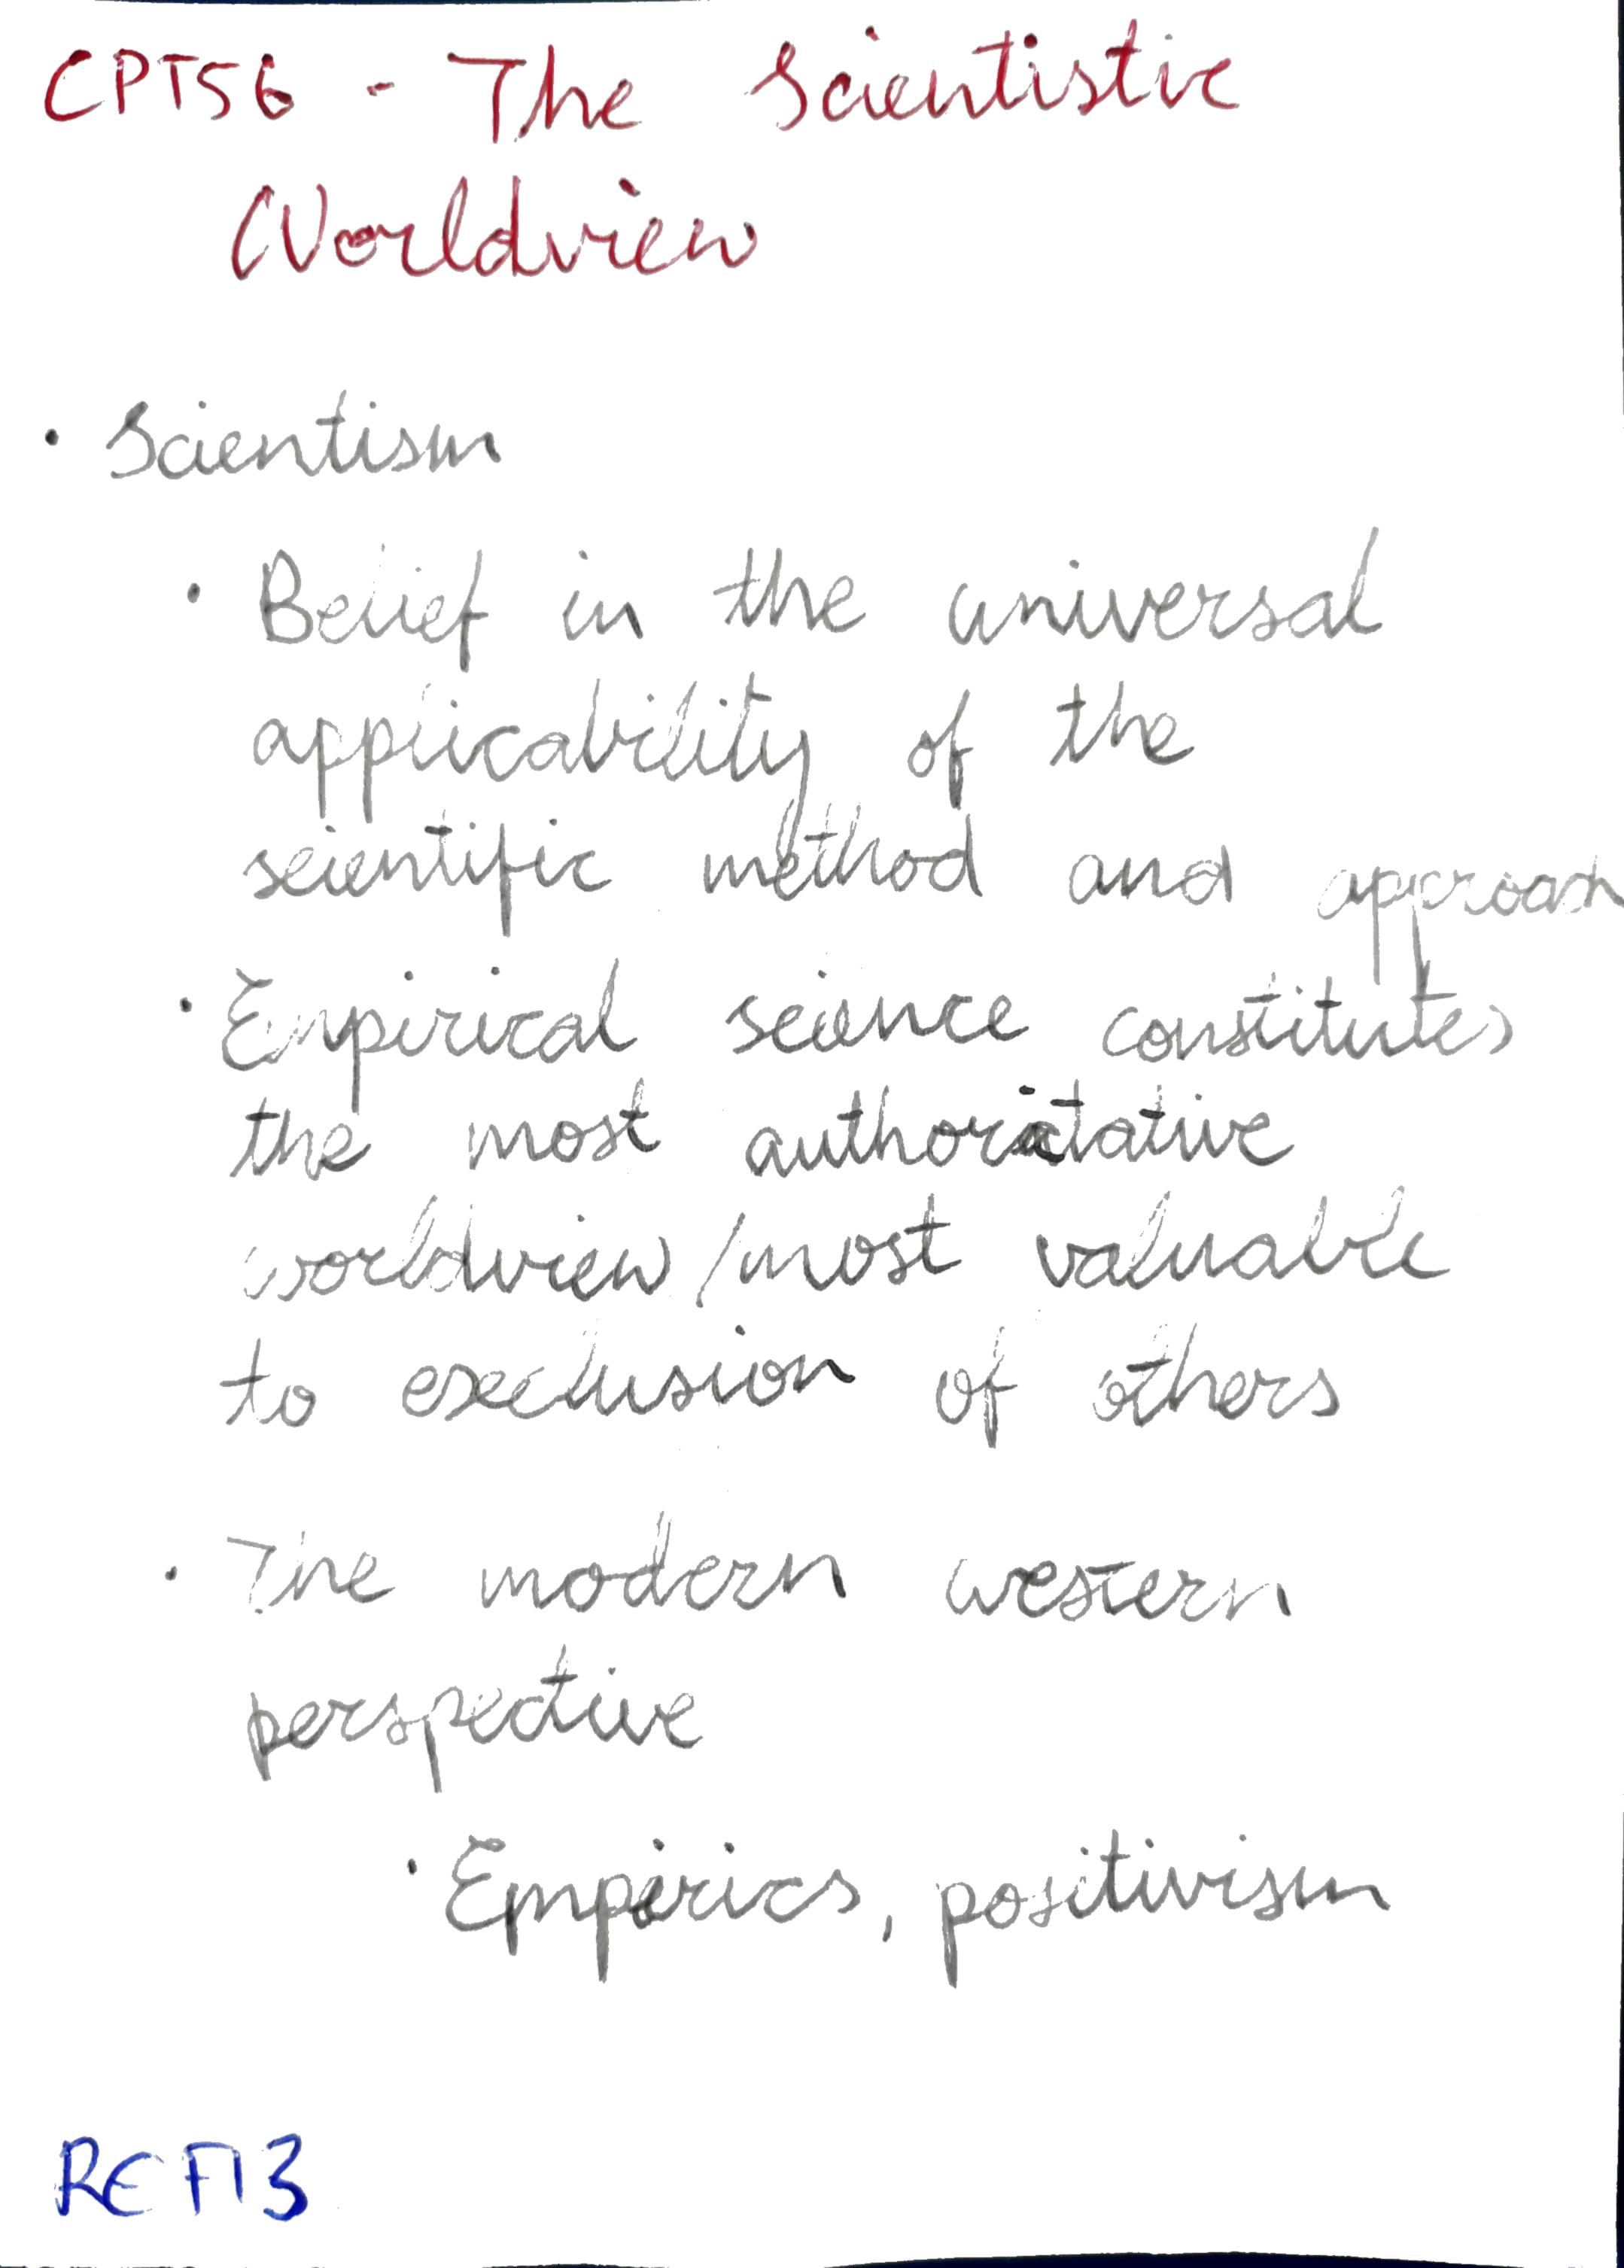 CPT56 - The Scientistic
Worldview
• Scientism
• Belief in the universal
applicability of the
scientific method and approach
• Empirical science constitutes
the most authoritative
worldview/most valuable
to exclusion of others
• The modern western
perspective
• Empirics, positivism
REF13